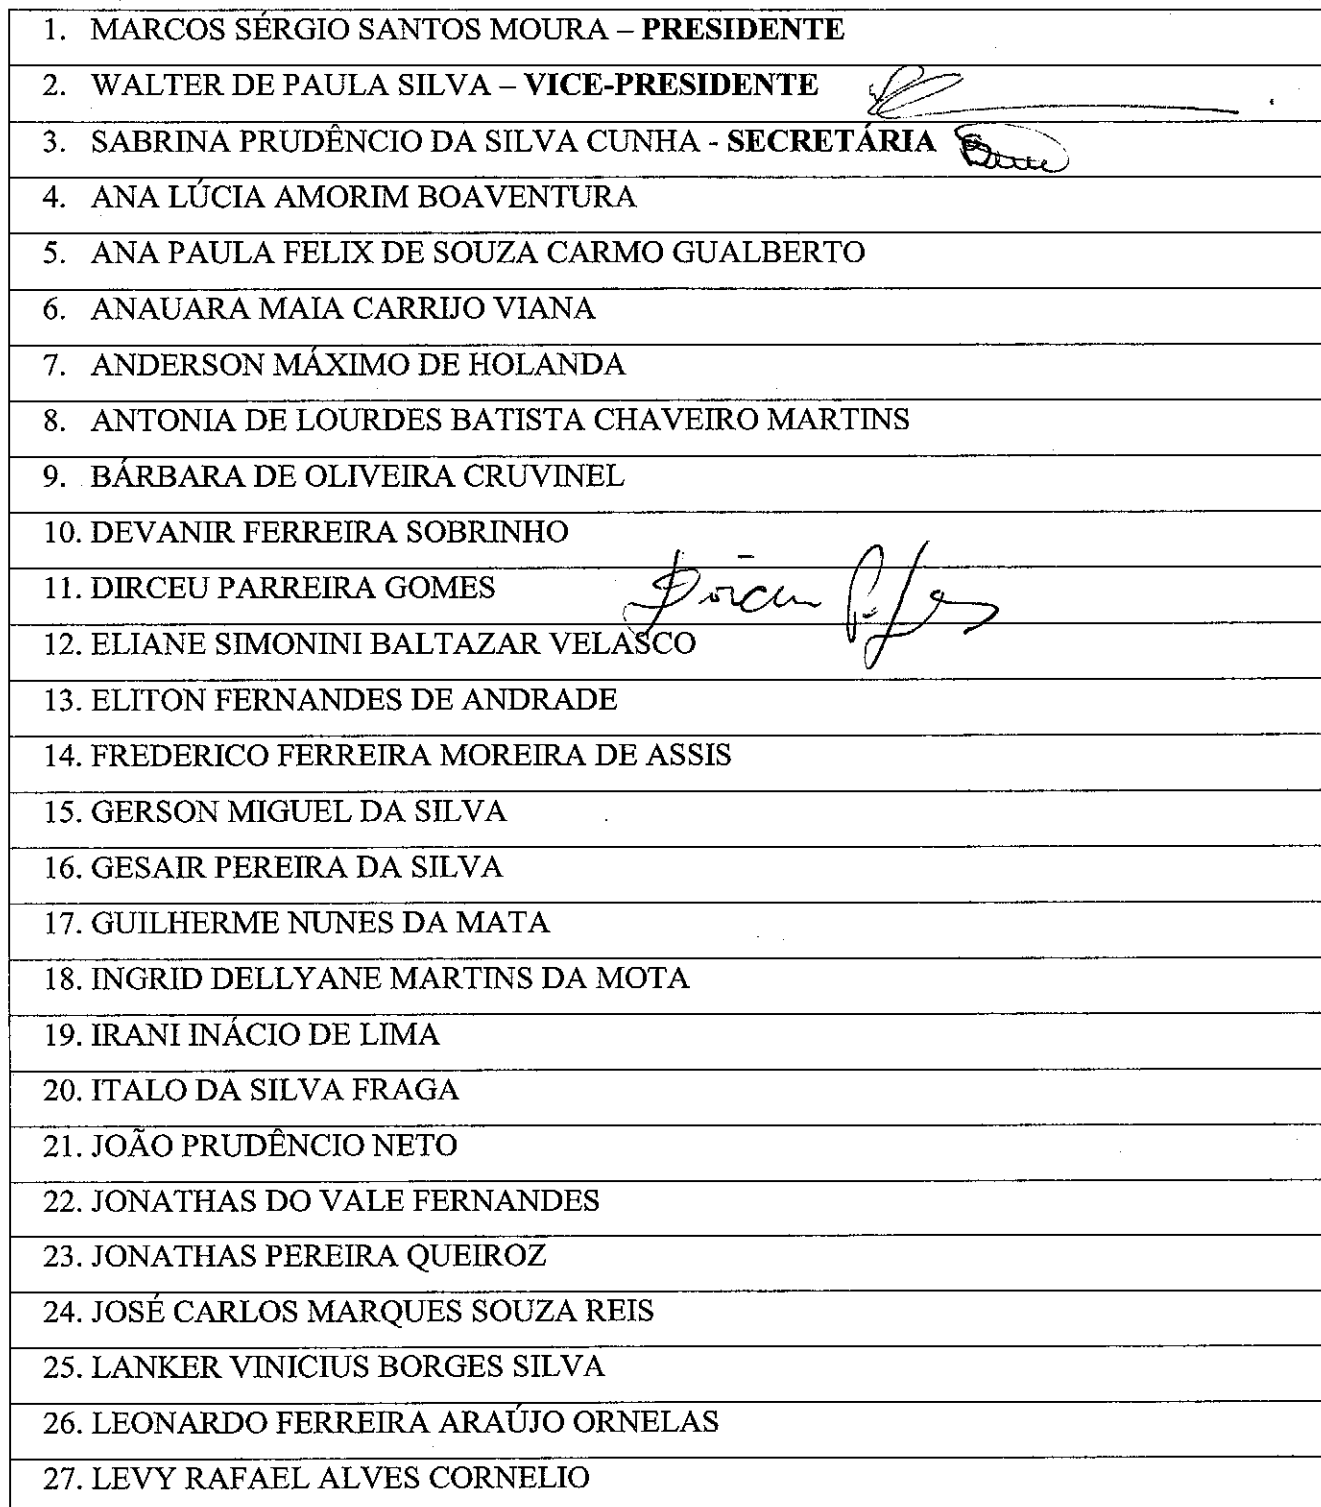 1. MARCOS SÉRGIO SANTOS MOURA – PRESIDENTE
2. WALTER DE PAULA SILVA – VICE-PRESIDENTE
3. SABRINA PRUDÊNCIO DA SILVA CUNHA - SECRETÁRIA
4. ANA LÚCIA AMORIM BOAVENTURA
5. ANA PAULA FELIX DE SOUZA CARMO GUALBERTO
6. ANAUARA MAIA CARRIJO VIANA
7. ANDERSON MÁXIMO DE HOLANDA
8. ANTONIA DE LOURDES BATISTA CHAVEIRO MARTINS
9. BÁRBARA DE OLIVEIRA CRUVINEL
10. DEVANIR FERREIRA SOBRINHO
11. DIRCEU PARREIRA GOMES
12. ELIANE SIMONINI BALTAZAR VELASCO
13. ELITON FERNANDES DE ANDRADE
14. FREDERICO FERREIRA MOREIRA DE ASSIS
15. GERSON MIGUEL DA SILVA
16. GESAIR PEREIRA DA SILVA
17. GUILHERME NUNES DA MATA
18. INGRID DELLYANE MARTINS DA MOTA
19. IRANI INÁCIO DE LIMA
20. ITALO DA SILVA FRAGA
21. JOÃO PRUDÊNCIO NETO
22. JONATHAS DO VALE FERNANDES
23. JONATHAS PEREIRA QUEIROZ
24. JOSÉ CARLOS MARQUES SOUZA REIS
25. LANKER VINICIUS BORGES SILVA
26. LEONARDO FERREIRA ARAÚJO ORNELAS
27. LEVY RAFAEL ALVES CORNELIO